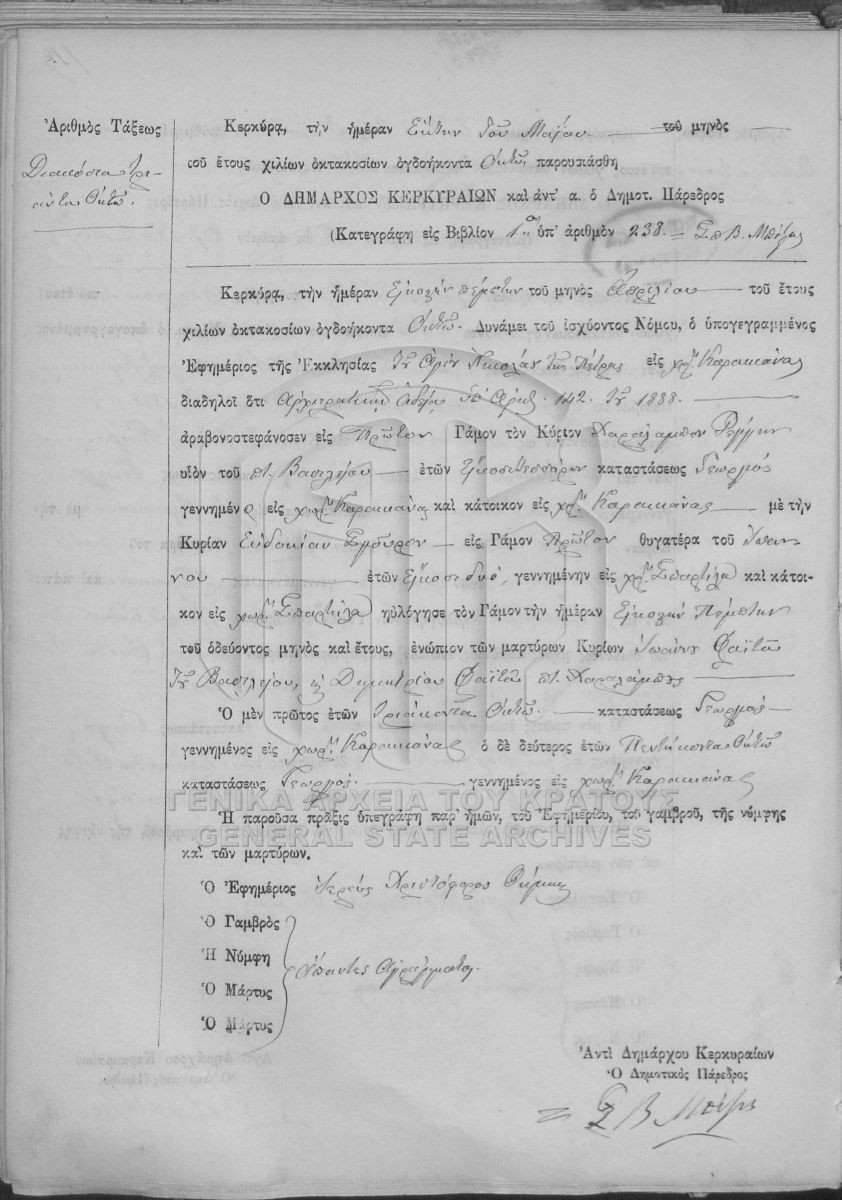 Ἀριθμὸς Τάξεως
Διακόσια τρι-
άντα Οκτώ.
Κερκύρᾳ, τὴν ἡμέραν Εκτην του Μαΐου — τοῦ μηνὸς
τοῦ ἔτους χιλίων ὀκτακοσίων ὀγδοήκοντα Οκτώ παρουσιάσθη
Ο ΔΗΜΑΡΧΟΣ ΚΕΡΚΥΡΑΙΩΝ καὶ ἀντ' α. ὁ Δημοτ. Πάρεδρος
(Κατεγράφη εἰς Βιβλίον 1ον ὑπ' ἀριθμὸν 238. =
Κερκύρᾳ, τὴν ἡμέραν Εικοστήν πέμπτην τοῦ μηνὸς Απριλίου — τοῦ ἔτους
χιλίων ὀκτακοσίων ὀγδοήκοντα Οκτώ. Δυνάμει τοῦ ἰσχύοντος Νόμου, ὁ ὑπογεγραμμένος
Ἐφημέριος τῆς Ἐκκλησίας του Αγίου Νικολάου της Πέτρας εἰς χωρ. Καρακιάνα
διαδηλοῖ ὅτι Αρχιερατικῇ Αδείᾳ υπ' Αριθ. 142. του 1888. —
ἀραβονοστεφάνοσεν εἰς Πρῶτον Γάμον τὸν Κύριον Χαράλαμπον
υἱὸν τοῦ π. Βασιλείου — ἐτῶν Εικοσιτεσσάρων καταστάσεως Γεωργός
γεννημένο εἰς χωρ. Καρακιάνα καὶ κάτοικον εἰς χωρ. Καρακιάνας — μὲ τὴν
Κυρίαν Ευδοκίαν — εἰς Γάμον Πρῶτον θυγατέρα τοῦ Ιωάν-
νου — ἐτῶν Εικοσιδυό, γεννημένην εἰς χωρ. Σπαρτίλα καὶ κάτοι-
κον εἰς χωρ. Σπαρτίλα ηὐλόγησε τὸν Γάμον τὴν ἡμέραν Εικοστήν Πέμπτην
τοῦ ὁδεύοντος μηνὸς καὶ ἔτους, ἐνώπιον τῶν μαρτύρων Κυρίων Ιωάννου Φαϊτᾶ
του Βασιλείου, κ Δημητρίου Φαϊτᾶ π. Χαραλάμπης —
Ὁ μὲν πρῶτος ἐτῶν τριάκοντα Οκτώ — καταστάσεως Γεωργός —
γεννημένος εἰς χωρ. Καρακιάνας ὁ δὲ δεύτερος ἐτῶν Πεντήκοντα Οκτώ
καταστάσεως Γεωργός. — γεννημένος εἰς χωρ. Καρακιάνας
ΓΕΝΙΚΑ ΑΡΧΕΙΑ ΤΟΥ ΚΡΑΤΟΥΣ
Ἡ παροῦσα πρᾶξις ὑπεγράφη παρ' ἡμῶν, τοῦ Ἐφημερίου, τοῦ γαμβροῦ, τῆς νύμφης
GENERAL STATE ARCHIVES
καὶ τῶν μαρτύρων.
Ὁ Ἐφημέριος Ιερεύς Χριστόφορος
Ὁ Γαμβρὸς
Ἡ Νύμφη
Άπαντες Αγράμματοι.
Ὁ Μάρτυς
Ὁ Μάρτυς
Ἀντὶ Δημάρχου Κερκυραίων
Ὁ Δημοτικὸς Πάρεδρος